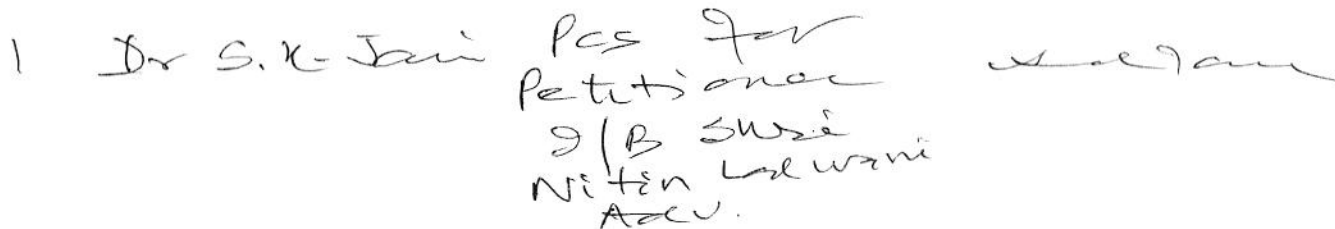 1 Dr S.K. Jain Pcs for
Petitioner
I/B Shri
Nitin Lalwani
Adv.